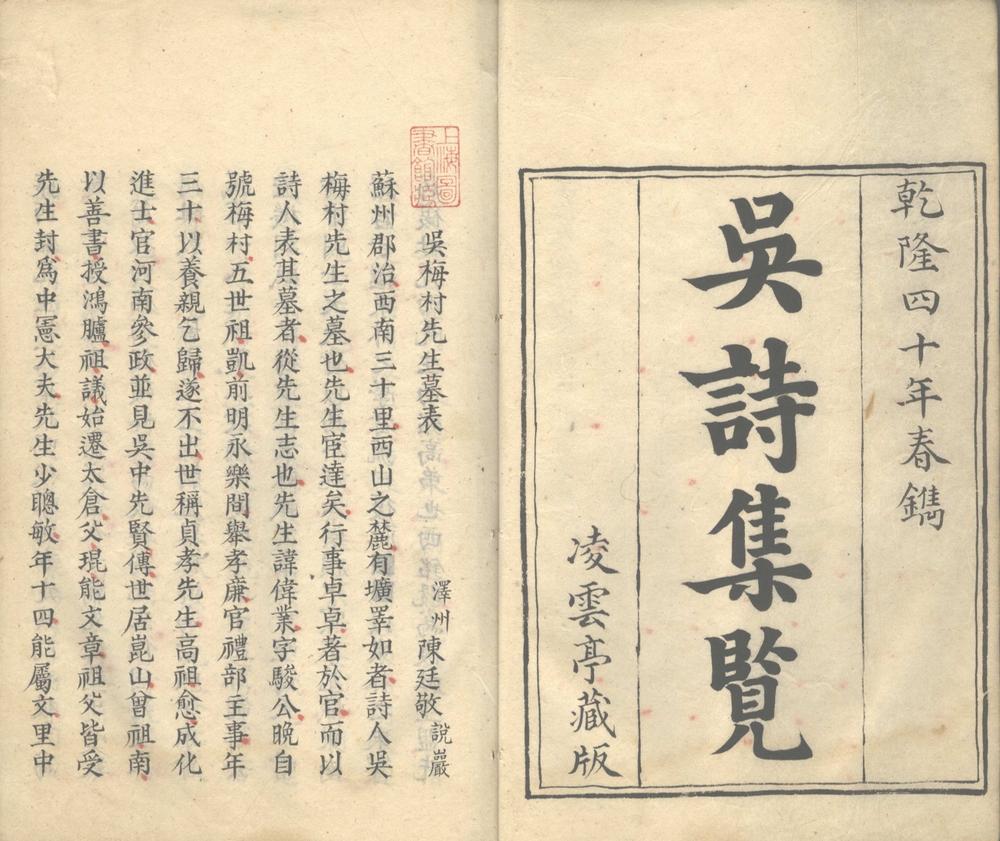 乾隆四十年春鐫
吳詩集覽
凌雲亭藏版
上海圖書館藏
吳梅村先生墓表
澤州陳廷敬說巖
蘇州郡治西南三十里西山之麓有壙睪如者詩人吳
梅村先生之墓也先生宦達矣行事卓卓著於官而以
詩人表其墓者從先生志也先生諱偉業字駿公晚自
號梅村五世祖凱前明永樂間舉孝廉官禮部主事年
三十以養親乞歸遂不出世稱貞孝先生高祖愈成化
進士官河南參政並見吳中先賢傳世居崑山曾祖南
以善書授鴻臚祖議始遷太倉父琨能文章祖父皆受
先生封爲中憲大夫先生少聰敏年十四能屬文里中